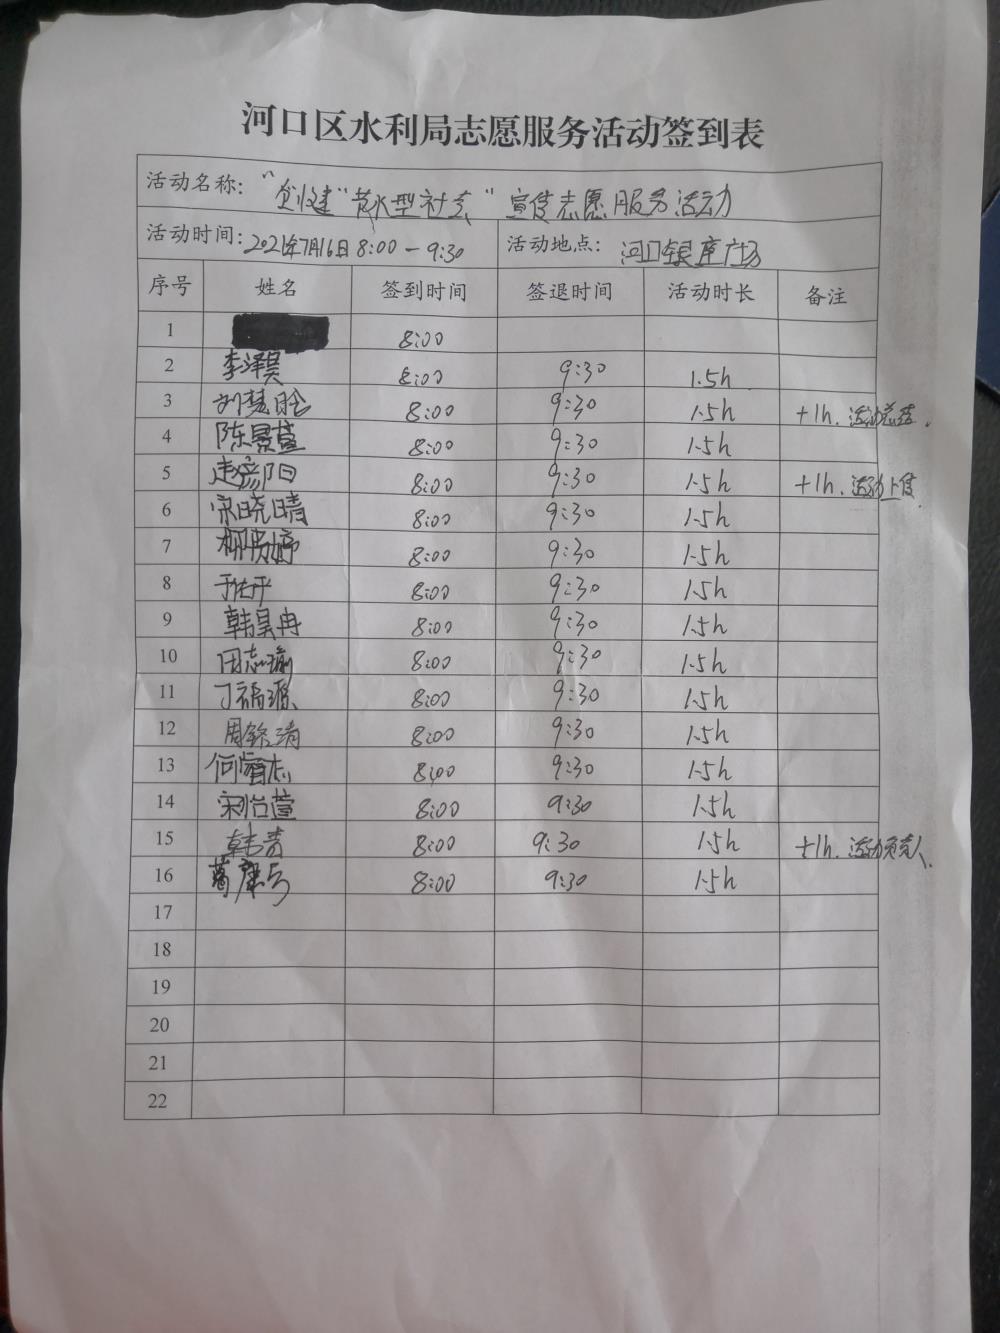 河口区水利局志愿服务活动签到表
活动名称："创建"节水型社会"宣传志愿服务活动
活动时间：2021年7月16日 8:00-9:30 活动地点：河口银座广场
序号 姓名 签到时间 签退时间 活动时长 备注
1 8:00
2 李泽昊 8:00 9:30 1.5h
3 刘梦晗 8:00 9:30 1.5h +1h.活动总结.
4 陈景萱 8:00 9:30 1.5h
5 赵彦阳 8:00 9:30 1.5h +1h.活动上传
6 宋晓晴 8:00 9:30 1.5h
7 8:00 9:30 1.5h
8 于佑平 8:00 9:30 1.5h
9 韩昊冉 8:00 9:30 1.5h
10 田志瑜 8:00 9:30 1.5h
11 丁福源 8:00 9:30 1.5h
12 周 清 8:00 9:30 1.5h
13 何 志 8:00 9:30 1.5h
14 宋怡萱 8:00 9:30 1.5h
15 韩青 8:00 9:30 1.5h +1h.活动负责人.
16 8:00 9:30 1.5h
17
18
19
20
21
22